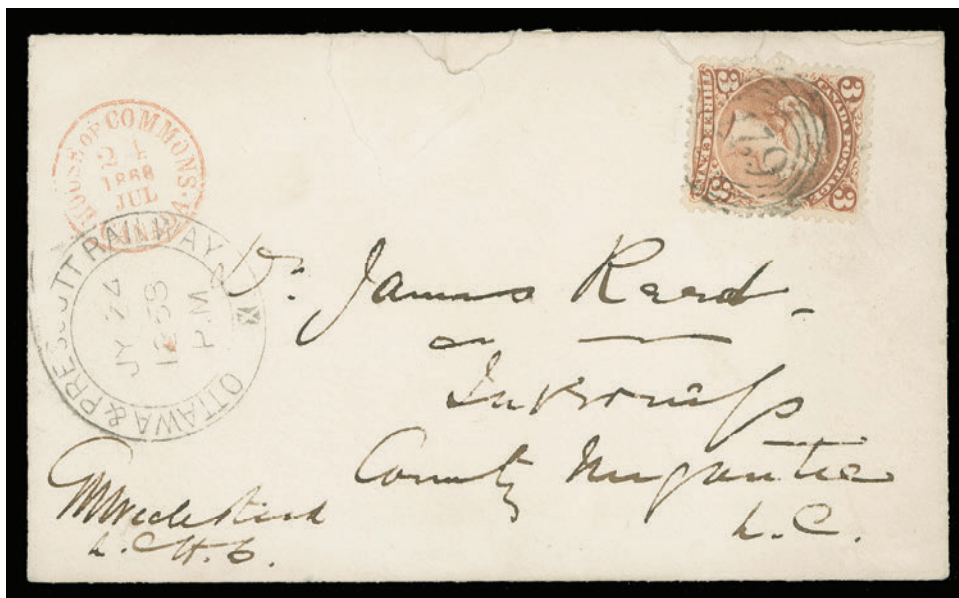 HOUSE OF COMMONS.
24
1868
JUL
OTTAWA & PRESCOTT RAILWAY
JY 24
1868
P.M
3
3
CANADA POSTAGE
3
3
Dr. James Reed
Inverness
County Megantic
L.C.